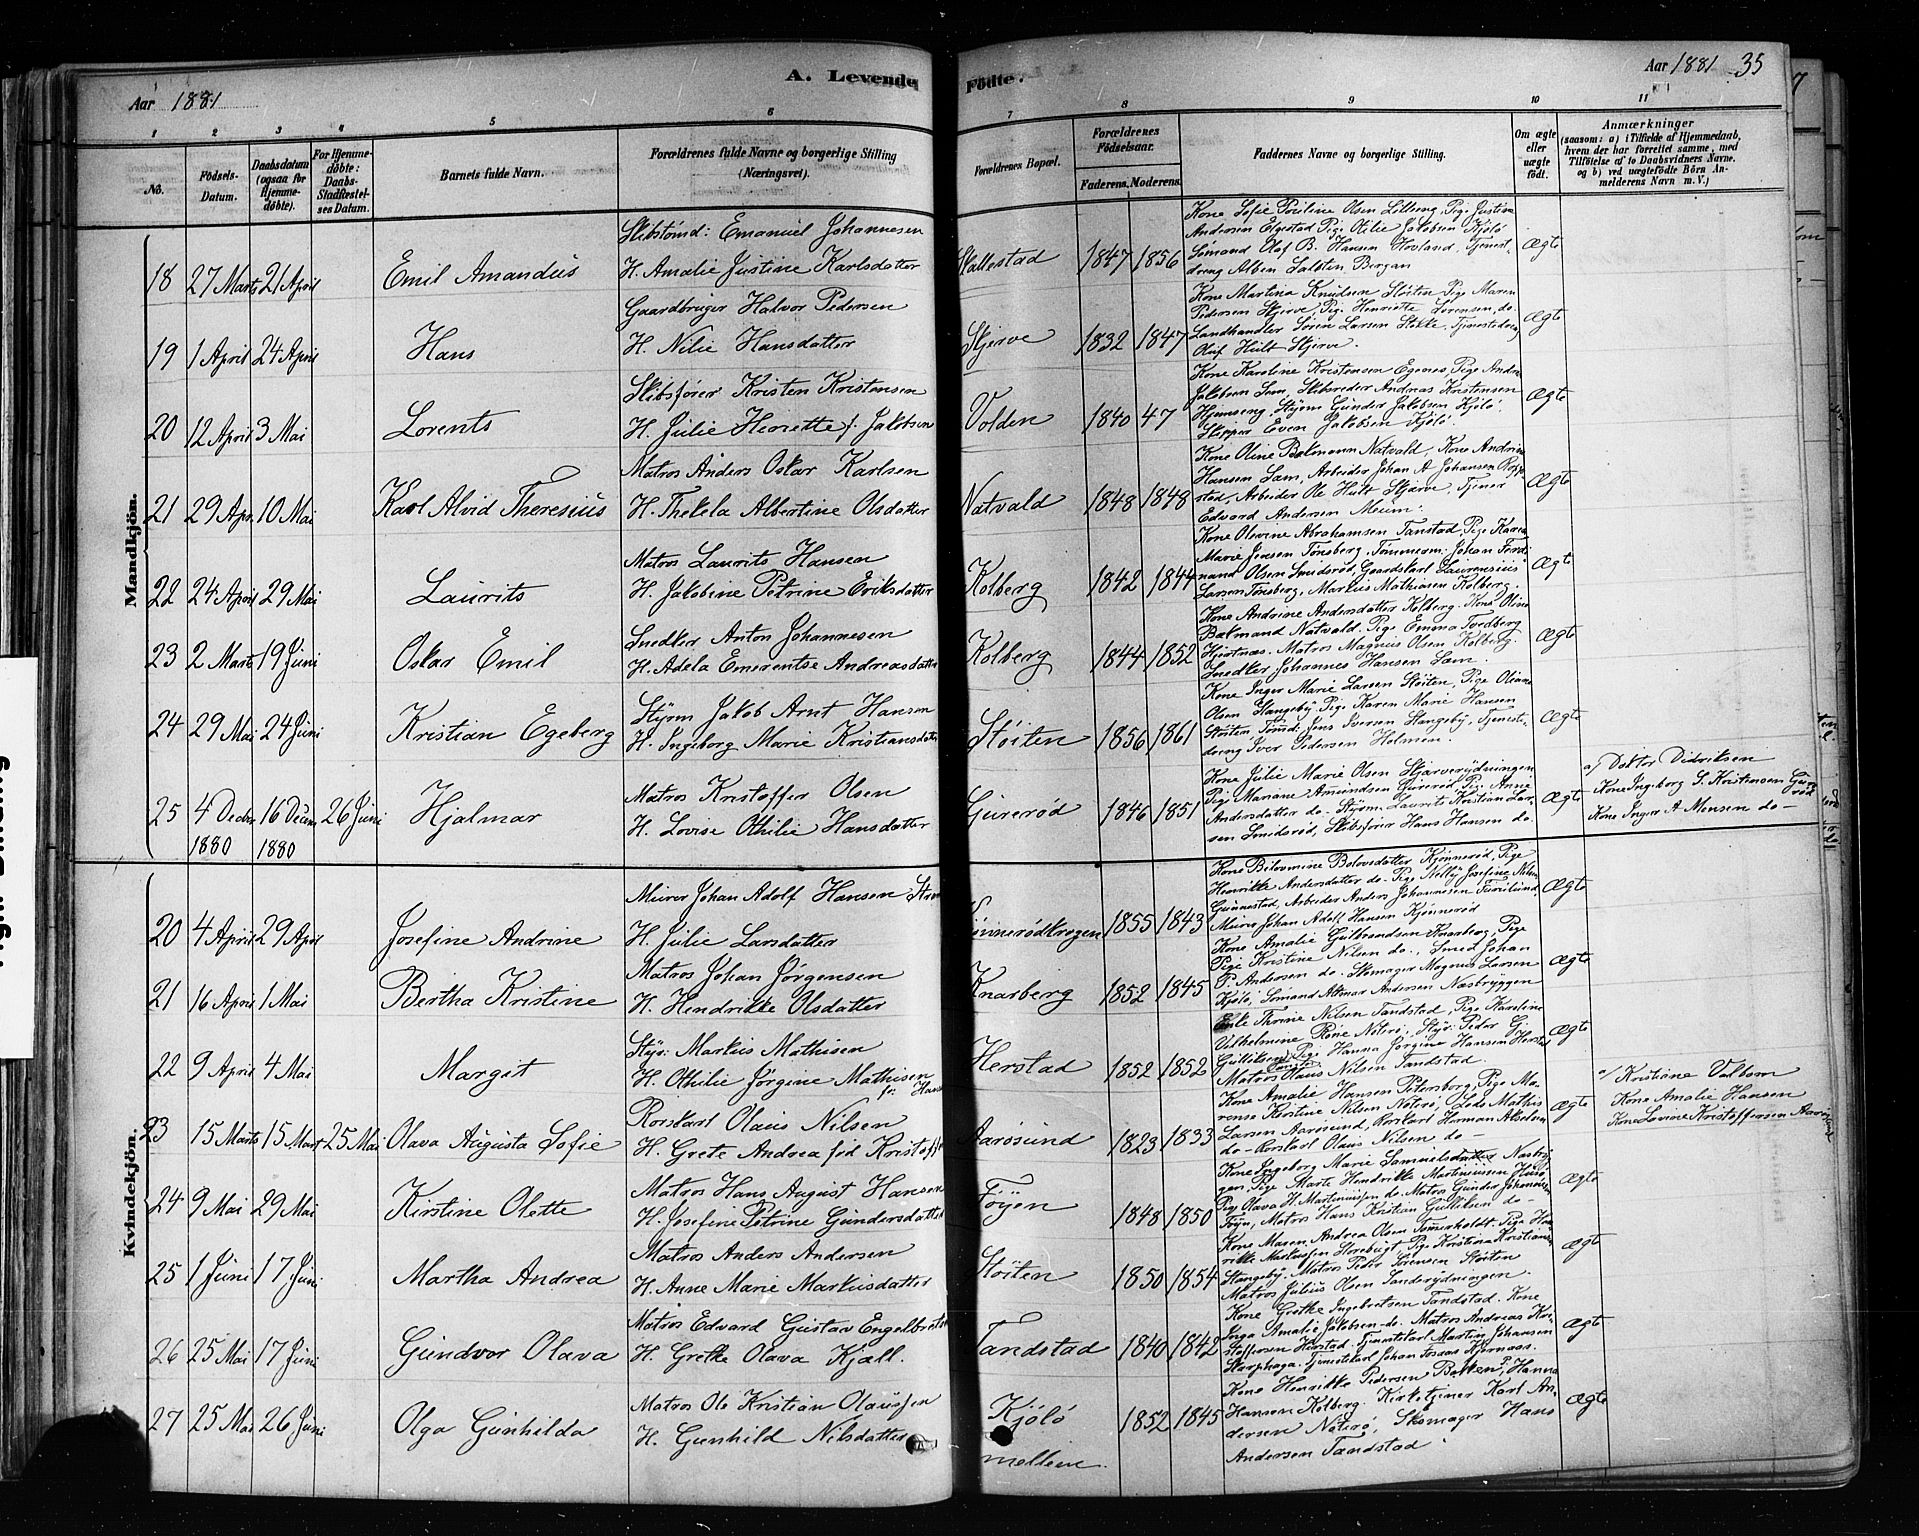 Aar 1881
A. Levende Fødte.
Aar 1881 35
1 2 3 4 5 6 7 8 9 10 11
No.
Fødsels-Datum.
Daabsdatum (ogsaa for Hjemme-døbte).
For Hjemme-døbte: Daabs-Stadfæstel-ses Datum.
Barnets fulde Navn.
Forældrenes fulde Navne og borgerlige Stilling (Næringsvei).
Forældrenes Bopæl.
Forældrenes Fødselsaar.
Faderens. Moderens.
Faddernes Navne og borgerlige Stilling.
Om ægte eller uægte født.
Anmærkninger
(saasom: a) i Tilfælde af Hjemmedaab, hvem der har forrettet samme, med Tilføielse af to Daabsvidners Navne. og b) ved uægtefødte Børn An-melderens Navn m. V.)
Mandkjön.
18 27 Marts 21 April Emil Amandus
Skibstømd: Emanuel Johannesen
H. Amalie Justine Karlsdatter
Skallestad 1847 1856
Kone Sofie Pouline Olsen Lilleeng, Pige Justine
Andersen Elgestad Pige Otilie Jakobsen Kjölö
Sømand Olaf B. Hansen Hovland, Tjenest-
dreng Albin Salsten Bergan
Ægte
19 1 April 24 April Hans
Gaardbruger Halvor Pedersen
H. Nilie Hansdatter
Skjerve 1832 1847
Kone Martina Knudsen Støiten Pige Maren
Pedersen Skjerve, Pige Henriette Sørensen, do.
Landhandler Sørin Larsen Stokke, Tjenestedreng
Oluf Hult Skjerve.
Ægte
20 12 April 3 Mai Lorents
Skibsfører Kristen Kristensen
H. Julie Henriette f. Jakobsen
Volden 1840 47
Kone Karoline Kristensen Egenes, Pige Andrea
Jakobsen Sem, Skibsreder Andreas Kristensen
Hjemseng, Styrm Gunder Jakobsen Kjölö,
Skipper Even Jakobsen Kjölö.
Ægte
21 29 Apr. 10 Mai Karl Alvid Theresius
Matros Anders Oskar Karlsen
H. Thekela Albertine Olsdatter
Natvald 1848 1848
Kone Oline Bakmann Natvald, Kone Andrine
Hansen Sem, Arbeider Johan A Johansen
stad, Arbeider Ole Hult Skjerve, Tjener
Edvard Andersen Meum.
Ægte
22 24 April 29 Mai Laurits
Matros Laurits Hansen
H. Jakobine Petrine Eriksdatter
Kolberg 1842 1844
Kone Olevine Abrahamsen Tanstad, Pige Karen
Marie Jensen Tønsberg, Tømmerm: Johan Ferdi-
nand Olsen Smidsrød, Gaardskarl Laurensius
Larsen Tønsberg, Markus Mathisen Kolberg.
Ægte
23 2 Marts 19 Juni Oskar Emil
Snedker Anton Johannesen
H. Adela Emerentse Andreasdatter
Kolberg 1844 1852
Kone Andrine Andersdatter Kolberg. Kone Oline
Bakmand Natvald, Pige Emma Fordberg
Hjertnæs. Matros Magnus Olsen Kolberg.
Snedker Johannes Hansen Sem.
Ægte
24 29 Mai 24 Juni Kristian Egeberg
Styrm Jakob Arnt Hansen
H. Ingeborg Marie Kristiansdatter
Støiten 1856 1861
Kone Inger Marie Larsen Støiten, Pige Oleane
Olsen Stangeby Pige Karen Marie Hansen
Støiten Tømd: Jens Iversen Stangeby, Tjenest-
dreng Iver Pedersen Holmen.
Ægte
25 4 Decbr 1880 16 Decem 1880 26 Juni Hjalmar
Matros Kristoffer Olsen
H. Lovise Othilie Hansdatter
Gurerød 1846 1851
Kone Julie Marie Olsen Skjerverydningen
Pige Mariane Amundsen Gurerød Pig: Anne
Andersdatter do. Styrm: Laurits Kristian Lar-
sen Smidsrød, Skibsfører Hans Hansen do.
Ægte
a) Doktor Didriksen
Kone Ingeborg S. Kristensen Gurerød
Kone Inger A. Monsen do-
Kvindekjön.
20 4 April 29 April Josefine Andrine
Murer Johan Adolf Hansen
H. Julie Larsdatter
Kjønnerødkrogen 1855 1843
Kone Bilovmine Bolovsdatter Kjønnerød, Pige
Henrikke Andersdatter do- Pige Nelly Josefine Nilsen
Gunnestad, Arbeider Anders Johannesen Furulund
Murer Johan Adolf Hansen Kjønnerød
Ægte
21 16 April 1 Mai Bertha Kristine
Matros Johan Jørgensen
H. Hendrikke Olsdatter
Knarberg 1852 1845
Kone Amalie Gulbrandsen Knarberg, Pige
Pige Kristine Nilsen do., Smed Johan
P. Andersen do. Skomager Magnus Larsen
Kjölö, Sømand Altmar Andersen Næsbryggen
Ægte
22 9 April 4 Mai Margit
Styr: Markus Mathisen
H. Othilie Jørgine Mathisen
før: Hans
Herstad 1852 1852
Enke Thrine Nilsen Tandstad, Pige Karoline
Vilhelmine Røne Nøterø, Styr: Peder G.
Gulliksen, Pige Hanna Jørgine Hansen Herstad
Matros Claus Nilsen Tandstad.
Ægte
23 15 Marts 15 Mart 25 Mai Olava Augusta Sofie
Rorskarl Olaus Nilsen
H. Grete Andrea fød Kristoffe
Aarøsund 1823 1833
Kone Amalie Hansen Petersborg, Pige Ma-
rense Kirstine Nilsen Nøterø, Lods Mathis
Larsen Aarøsund, Rorskarl Herman Akselsen
do- Rorskarl Olaus Nilsen do-
Ægte
a/ Kristiane Valbom
Kone Amalie Hansen
Kone Lovine Kristoffersen Aarøsund
24 9 Mai 29 Mai Kirstine Olette
Matros Hans August Hansen
H. Josefine Petrine Gundersdatter
Føyen 1848 1850
Kone Ingeborg Marie Samuelsdatter Næsbryg-
gen Pige Marte Hendrikke Martiniussen Husø
Pig. Olava H. Martinussen do. Matros Gunder Johannesen
Føyn, Matros Hans Kristian Gulliksen do-
Ægte
25 1 Juni 17 Juni Martha Andrea
Matros Anders Andersen
H. Anne Marie Markusdatter
Støiten 1850 1854
Kone Maren Andrea Olsen Tømmerholdt. Pige Hen-
rikke Markussen Storebugt, Pige Kristina Kristians
Stangeby. Matros Peder Sørensen Støiten
Matros Julius Olsen Sanderydningen.
Ægte
26 25 Mai 17 Juni Gundvor Olava
Matros Edvard Gustav Engelbretsen
H. Grethe Olava Kjæll.
Tandstad 1840 1842
Kone Grethe Ingebretsen Tandstad. Kone
Inga Amalie Jakobsen do. Matros Andreas Kri-
stoffersen Herstad. Tjenestekarl Martin Johansen
Skarphaga. Tjenestekarl Johan Hjernaas.
Ægte
27 25 Mai 26 Juni Olga Gunhilda
Matros Ole Kristian Olaussen
H. Gunhild Nilsdatter
Kjölö mellem 1852 1845
Kone Henrikke Pedersen Bakken, Hanna
Hansen Kolberg. Kirketjener Karl An-
dersen Nøterø, Skomager Hans
Andersen Tandstad
Ægte